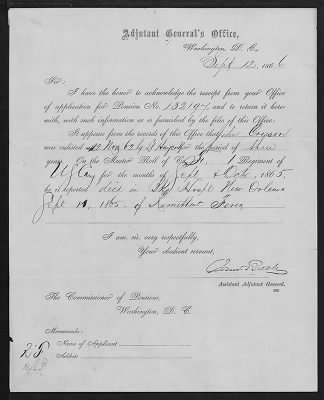 Adjutant General's Office,
Washington, D. C.
Sept 12, 1866
Sir:
I have the honor to acknowledge the receipt from your Office
of application for Pension No. and to return it here-
with, with such information as is furnished by the files of this Office:
It appears from the records of this Office that
was enlisted 12 Nov 62 at for the period of three
years. On the Muster Roll of Co. 1 Regiment of
US Cav for the months of Sept & Oct, 1865
he is reported died in Hospl New Orleans
Sept 11, 1865. of Remittent Fever
I am, sir, very respectfully,
Your obedient servant,
Assistant Adjutant General.
The Commissioner of Pensions,
Washington, D. C.
Memoranda:
Name of Applicant
Address